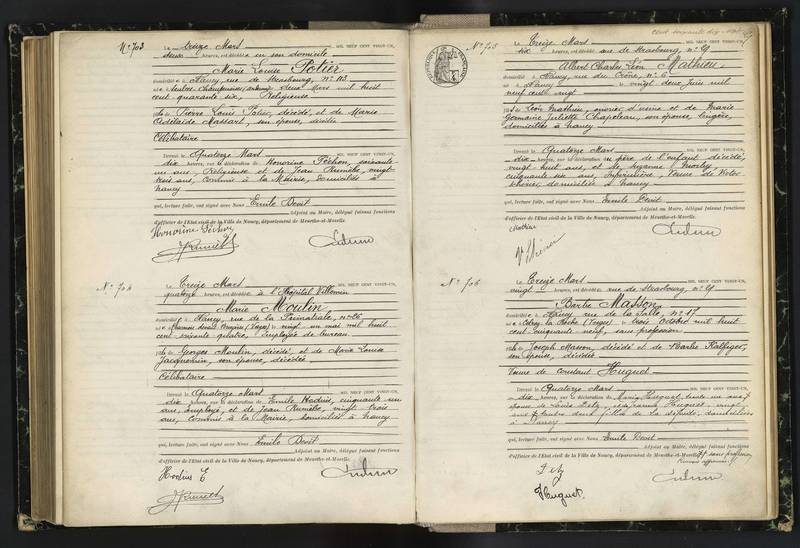 N° 703
Le Treize Mars MIL NEUF CENT VINGT-UN,
deux heures, est décédée en son domicile
Marie Louise Potier
domiciliée à Nancy, rue de Strasbourg, n° 113
deux Mars mil huit
cent quarante six, Religieuse
fille de Pierre Louis Potier, décédé, et de Marie
Adélaïde Massart, son épouse, décédée
Célibataire
Devant le Quatorze Mars MIL NEUF CENT VINGT-UN,
dix heures, sur la déclaration de Honorine Péchon, soixante
un ans, Religieuse et de Jean Rumèbe, vingt
trois ans, Commis à la Mairie, domiciliés à
Nancy
qui, lecture faite, ont signé avec Nous Emile Devit
Adjoint au Maire, délégué faisant fonctions
d'officier de l'Etat civil de la Ville de Nancy, département de Meurthe-et-Moselle.
Honorine
N° 704
Le Treize Mars MIL NEUF CENT VINGT-UN,
quatorze heures, est décédée à l'Hôpital Villemin
Marie Moulin
domiciliée à Nancy, rue de la Primatiale, n° 26
vingt un mai mil huit
cent soixante quatre, Employée de bureau
fille de Georges Moulin, décédé, et de Marie Louise
Jacquemin, son épouse, décédée
Célibataire
Devant le Quatorze Mars MIL NEUF CENT VINGT-UN,
dix heures, sur la déclaration de Emile Hodius, cinquante un
ans, employé, et de Jean Rumèbe, vingt trois
ans, Commis à la Mairie, domiciliés à Nancy
qui, lecture faite, ont signé avec Nous Emile Devit
Adjoint au Maire, délégué faisant fonctions
d'officier de l'Etat civil de la Ville de Nancy, département de Meurthe-et-Moselle.
Hodius E
N° 705
Le Treize Mars MIL NEUF CENT VINGT-UN,
six heures, est décédé rue de Strasbourg, n°
Albert Charles Léon Mathieu
domicilié à Nancy, rue du Crône, n° 6
né à Nancy le vingt deux Juin mil
neuf cent vingt
fils de Léon Mathieu, ouvrier d'usine et de Marie
Germaine Juliette Chapleau, son épouse, lingère,
domiciliés à Nancy
Devant le Quatorze Mars MIL NEUF CENT VINGT-UN,
dix heures, sur la déclaration du père de l'enfant décédé,
vingt huit ans, et de Suzanne
cinquante six ans, Infirmière,
domiciliés à Nancy
qui, lecture faite, ont signé avec Nous Emile Devit
Adjoint au Maire, délégué faisant fonctions
d'officier de l'Etat civil de la Ville de Nancy, département de Meurthe-et-Moselle.
Mathieu
N° 706
Le Treize Mars MIL NEUF CENT VINGT-UN,
vingt heures, est décédée rue de Strasbourg, n°
Barbe Masson
domiciliée à Nancy, rue de la Salle, n° 17
trois Octobre mil huit
cent cinquante neuf, sans profession
fille de Joseph Masson, décédé et de Barbe
son épouse, décédée
Veuve de Constant Huguet
Devant le Quatorze Mars MIL NEUF CENT VINGT-UN,
dix heures, sur la déclaration de Maria Huguet, trente un ans
épouse de Louis Huguet, vingt
ans, toutes deux filles de la défunte, domiciliées
à Nancy
qui, lecture faite, ont signé avec Nous Emile Devit
Adjoint au Maire, délégué faisant fonctions
d'officier de l'Etat civil de la Ville de Nancy, département de Meurthe-et-Moselle.
sans profession
Huguet